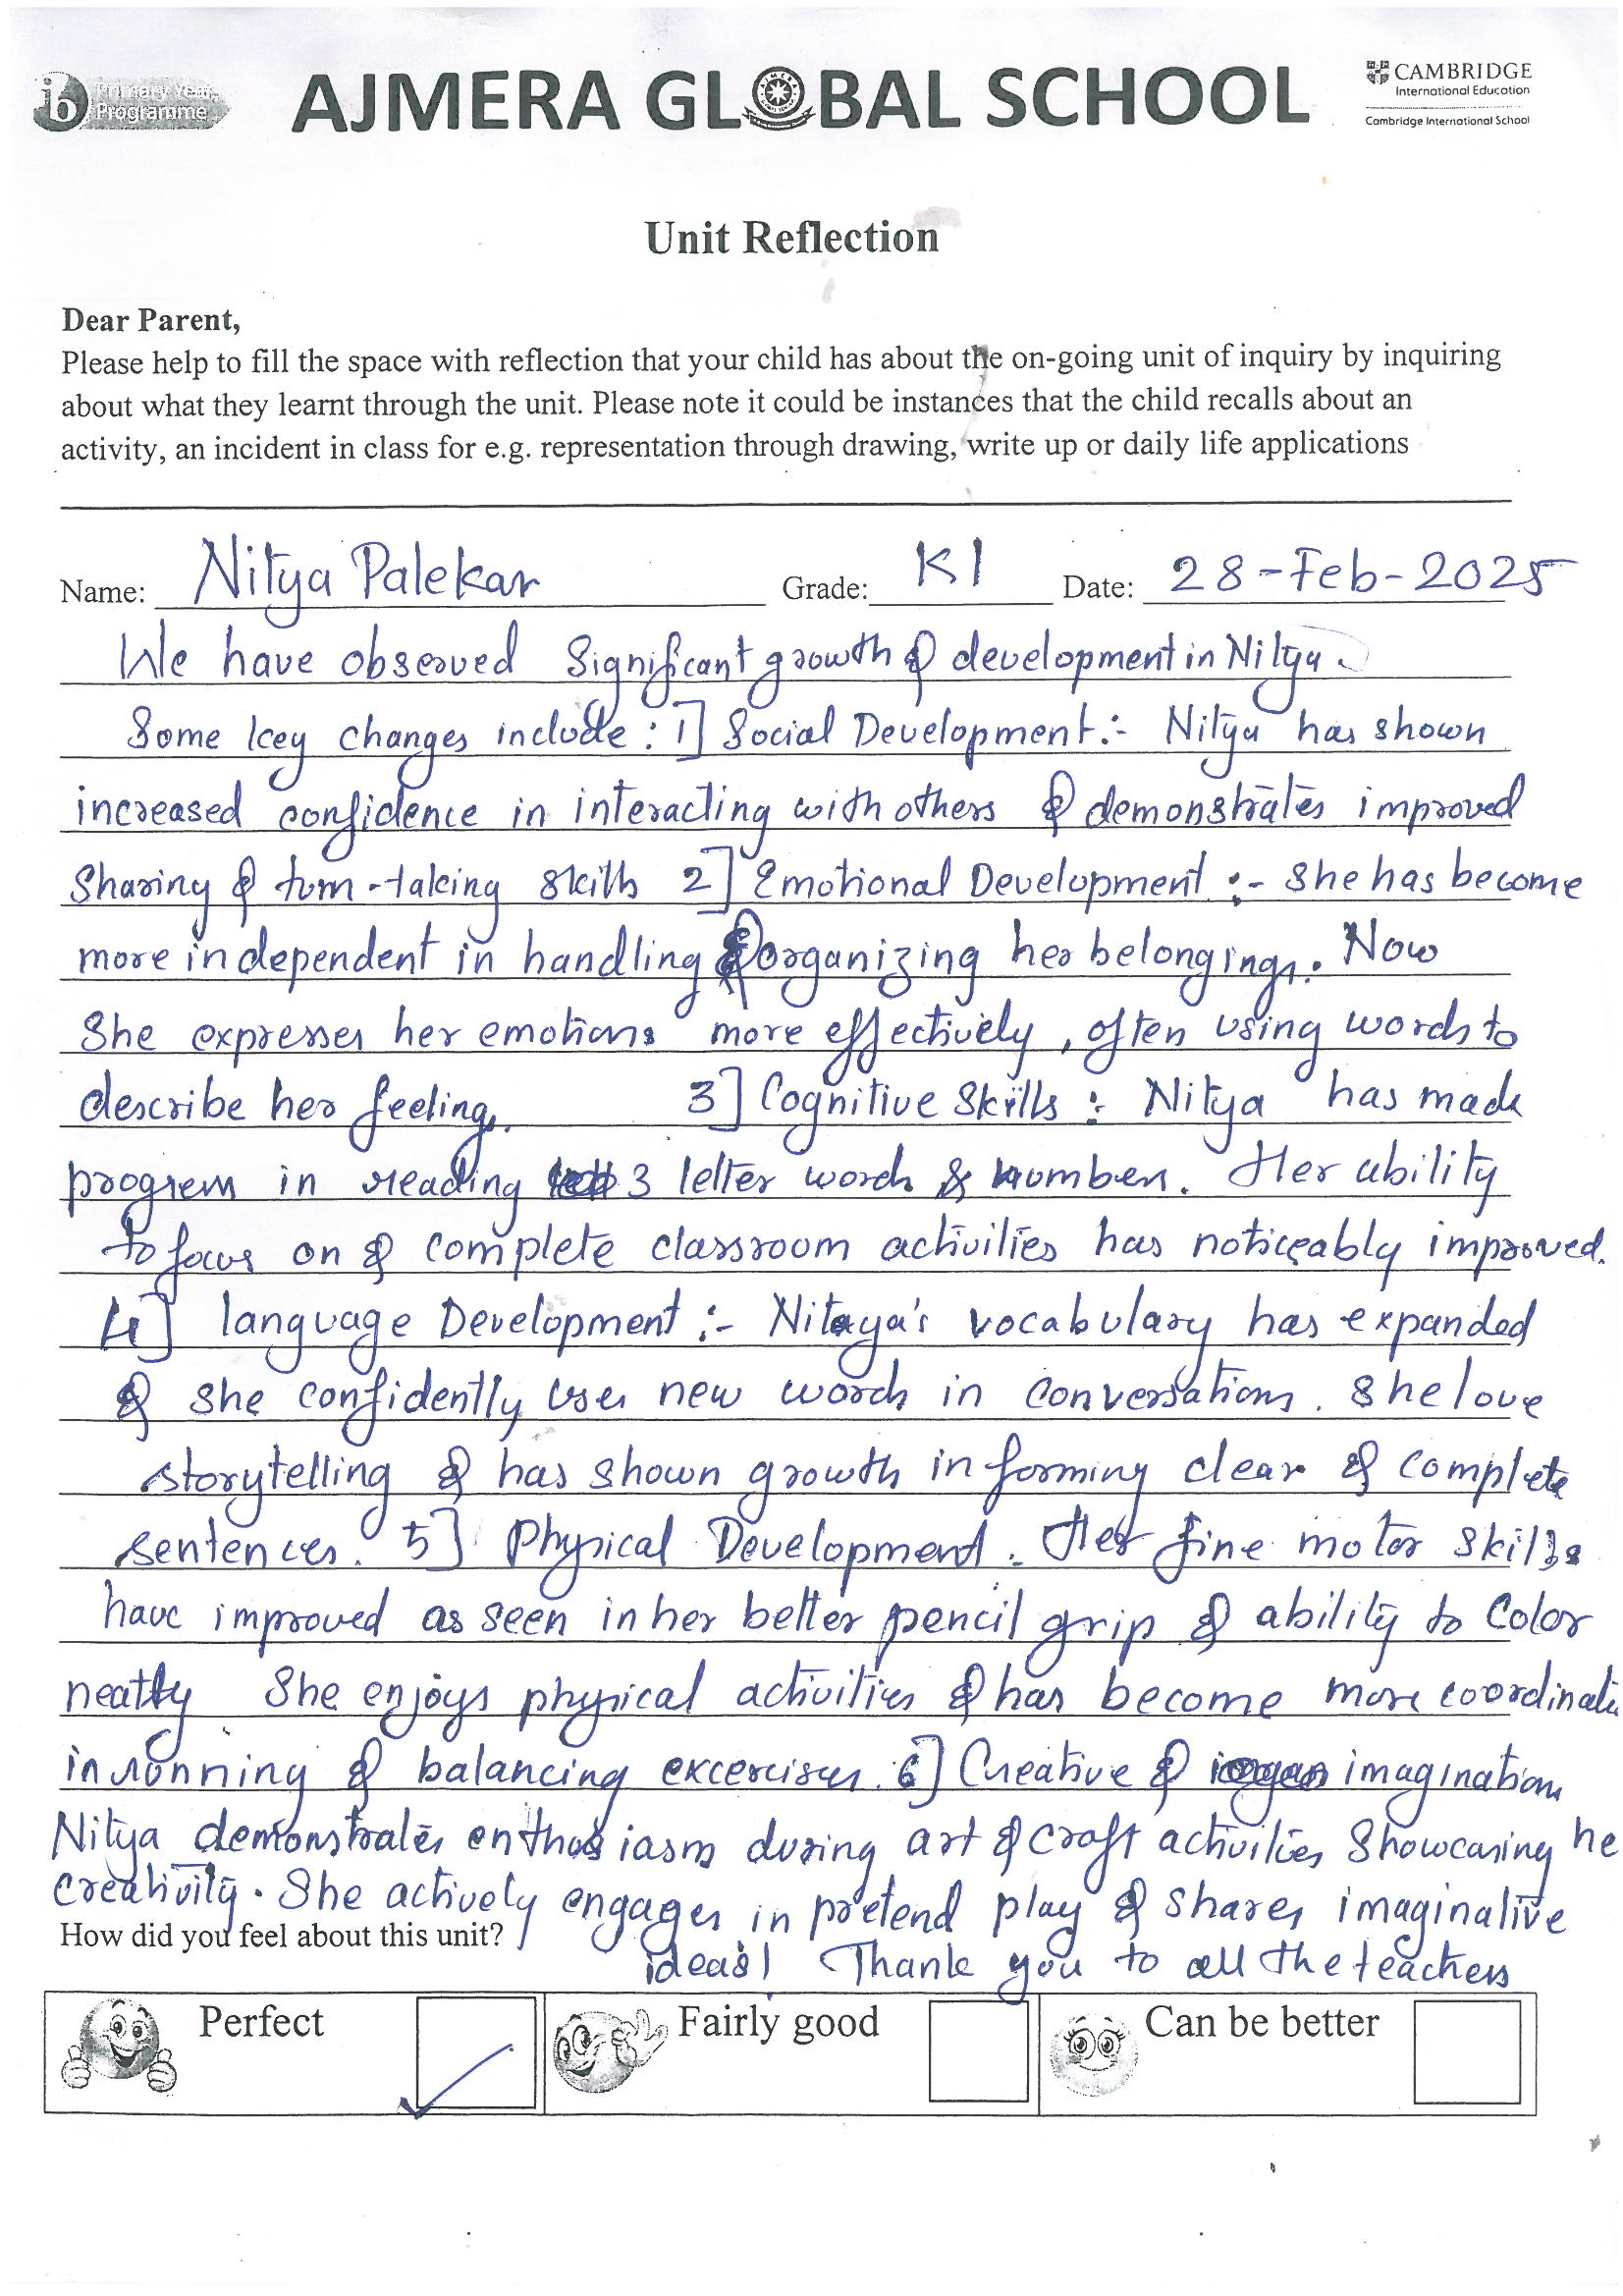 ib Primary Years Programme
AJMERA GLOBAL SCHOOL
CAMBRIDGE
International Education
Cambridge International School
Unit Reflection
Dear Parent,
Please help to fill the space with reflection that your child has about the on-going unit of inquiry by inquiring
about what they learnt through the unit. Please note it could be instances that the child recalls about an
activity, an incident in class for e.g. representation through drawing, write up or daily life applications
Name: Nitya Palekar Grade: K1 Date: 28-Feb-2025
We have observed Significant growth & development in Nitya.
Some key changes include : 1] Social Development:- Nitya has shown
increased confidence in interacting with others & demonstrates improved
Sharing & turn-taking skills 2] Emotional Development :- She has become
more independent in handling & organizing her belongings. Now
She expresses her emotions more effectively, often using words to
describe her feelings. 3] Cognitive Skills :- Nitya has made
progress in reading 3 letter words & numbers. Her ability
to focus on & complete classroom activities has noticeably improved.
4] language Development :- Nitaya's vocabulary has expanded
& she confidently uses new words in conversations. She love
storytelling & has shown growth in forming clear & complete
sentences. 5] Physical Development. Her fine motor skills
have improved as seen in her better pencil grip & ability to Color
neatly She enjoys physical activities & has become more coordinate
in running & balancing excercises. 6] Creative & imagination
Nitya demonstrates enthusiasm during art & craft activities Showcasing he
Creativity. She actively engages in pretend play & shares imaginative
How did you feel about this unit?
ideas! Thank you to all the teachers
Perfect Fairly good Can be better